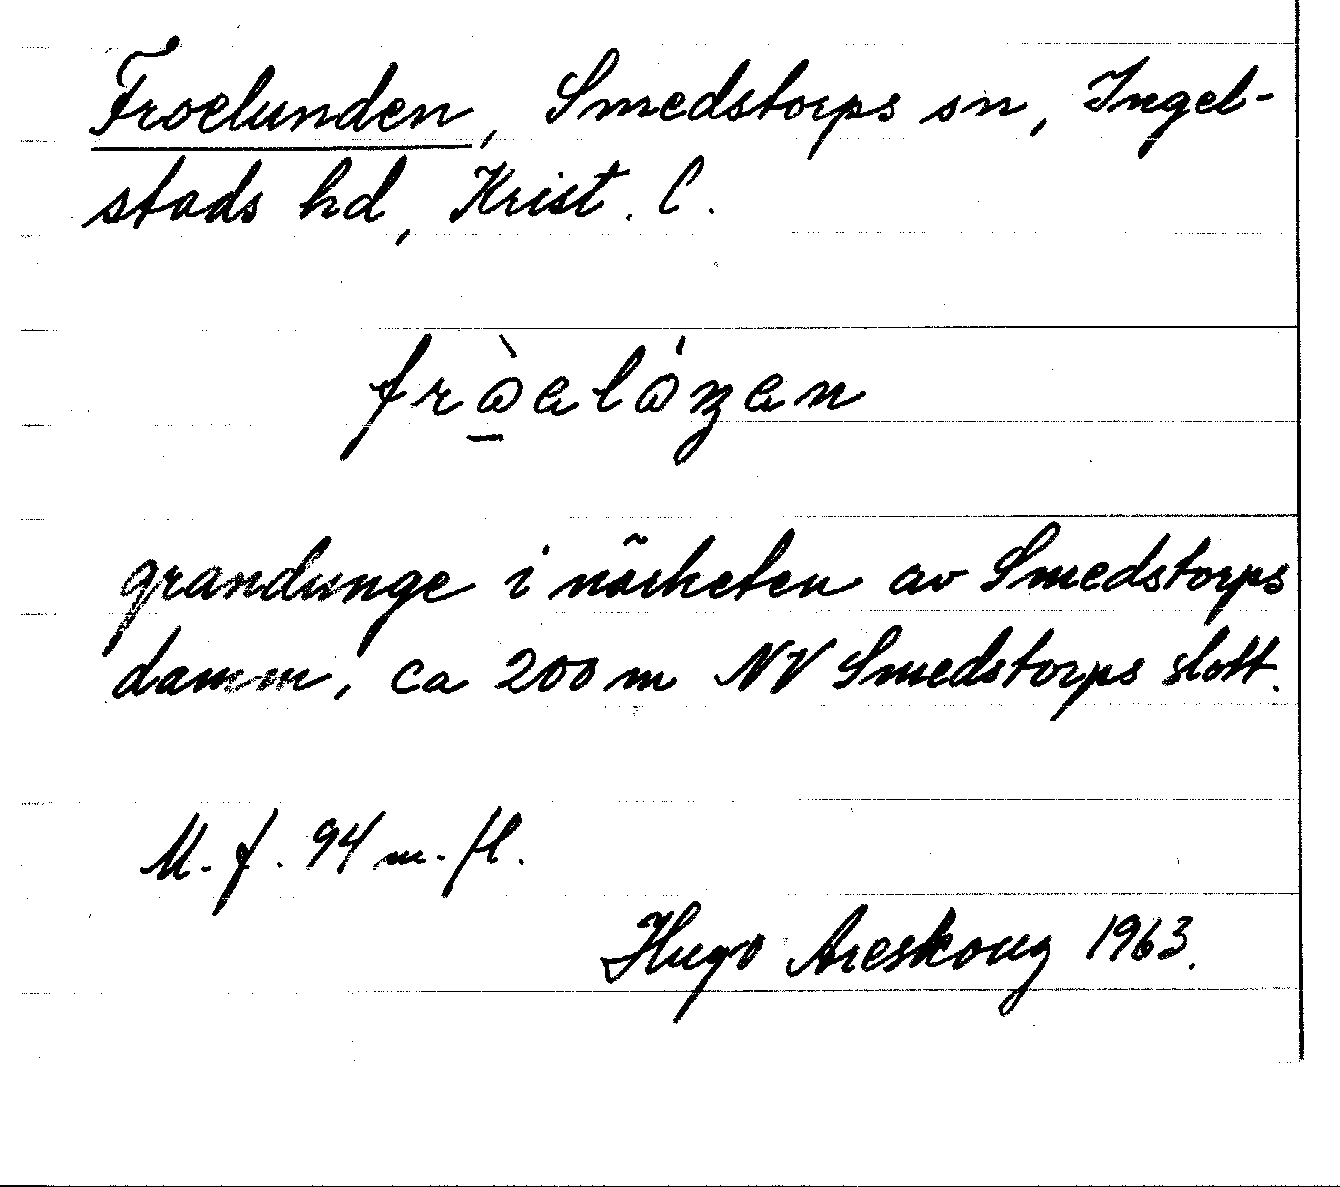 Froelunden, Smedstorps sn, Ingel-
stads hd, Krist. C.
grandunge i närheten av Smedstorps
damm, ca 200 m NV Smedstorps slott.
M. f. 94 m. fl.
Hugo Areskoug 1963.